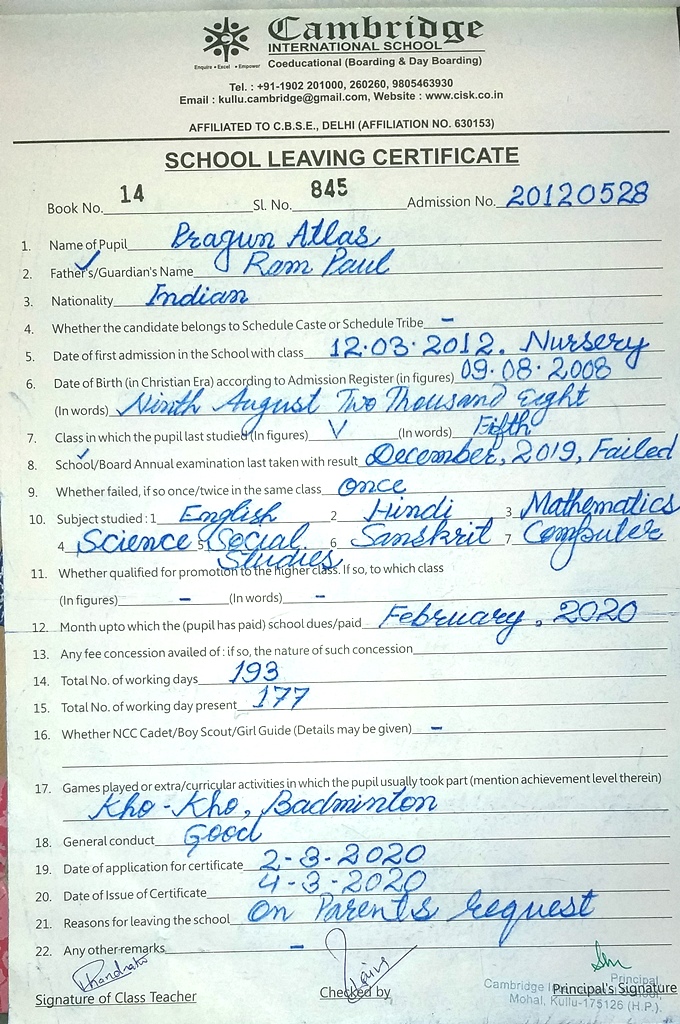 Cambridge
INTERNATIONAL SCHOOL
Enquire • Excel • Empower
Coeducational (Boarding & Day Boarding)
Tel. : +91-1902 201000, 260260, 9805463930
Email : kullu.cambridge@gmail.com, Website : www.cisk.co.in
AFFILIATED TO C.B.S.E., DELHI (AFFILIATION NO. 630153)
SCHOOL LEAVING CERTIFICATE
Book No. 14 Sl. No. 845 Admission No. 20120528
1. Name of Pupil Pragun Atlas
2. Father's/Guardian's Name Ram Paul
3. Nationality Indian
4. Whether the candidate belongs to Schedule Caste or Schedule Tribe -
5. Date of first admission in the School with class 12.03.2012. Nursery
6. Date of Birth (in Christian Era) according to Admission Register (in figures) 09.08.2008
(In words) Ninth August Two Thousand Eight
7. Class in which the pupil last studied (In figures) V (In words) Fifth
8. School/Board Annual examination last taken with result December, 2019, Failed
9. Whether failed, if so once/twice in the same class Once
10. Subject studied : 1 English 2 Hindi 3 Mathematics
4 Science 5 Social Studies 6 Sanskrit 7 Computer
11. Whether qualified for promotion to the higher class. If so, to which class
(In figures) - (In words) -
12. Month upto which the (pupil has paid) school dues/paid February, 2020
13. Any fee concession availed of : if so, the nature of such concession
14. Total No. of working days 193
15. Total No. of working day present 177
16. Whether NCC Cadet/Boy Scout/Girl Guide (Details may be given) -
17. Games played or extra/curricular activities in which the pupil usually took part (mention achievement level therein)
Kho-Kho, Badminton
18. General conduct Good
19. Date of application for certificate 2-3-2020
20. Date of Issue of Certificate 4-3-2020
21. Reasons for leaving the school On Parents request
22. Any other remarks -
Signature of Class Teacher Checked by Principal's Signature
Principal
Cambridge
Mohal, Kullu-175126 (H.P.).